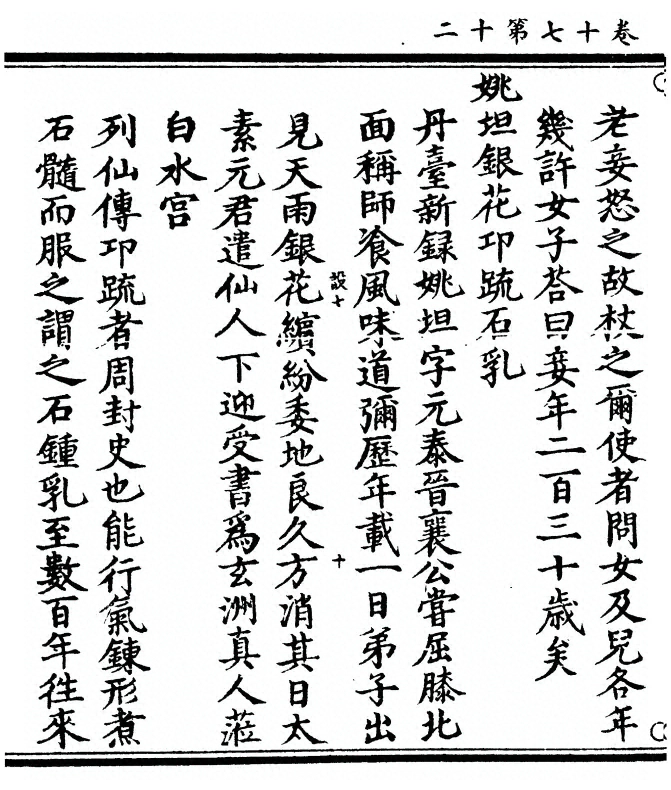 卷十七第十二
老妾怒之故杖之爾使者問女及兒各年
幾許女子荅曰妾年二百三十歲矣
姚坦銀花卭䟽石乳
丹臺新録姚坦字元泰晉襄公嘗屈膝北
面稱師飡風味道彌歷年載一日弟子出
設七
十
見天雨銀花繽紛委地良久方消其日太
素元君遣仙人下迎受書爲玄洲真人蒞
白水宫
列仙傳卭䟽者周封史也能行氣鍊形煮
石髓而服之謂之石鍾乳至數百年往來